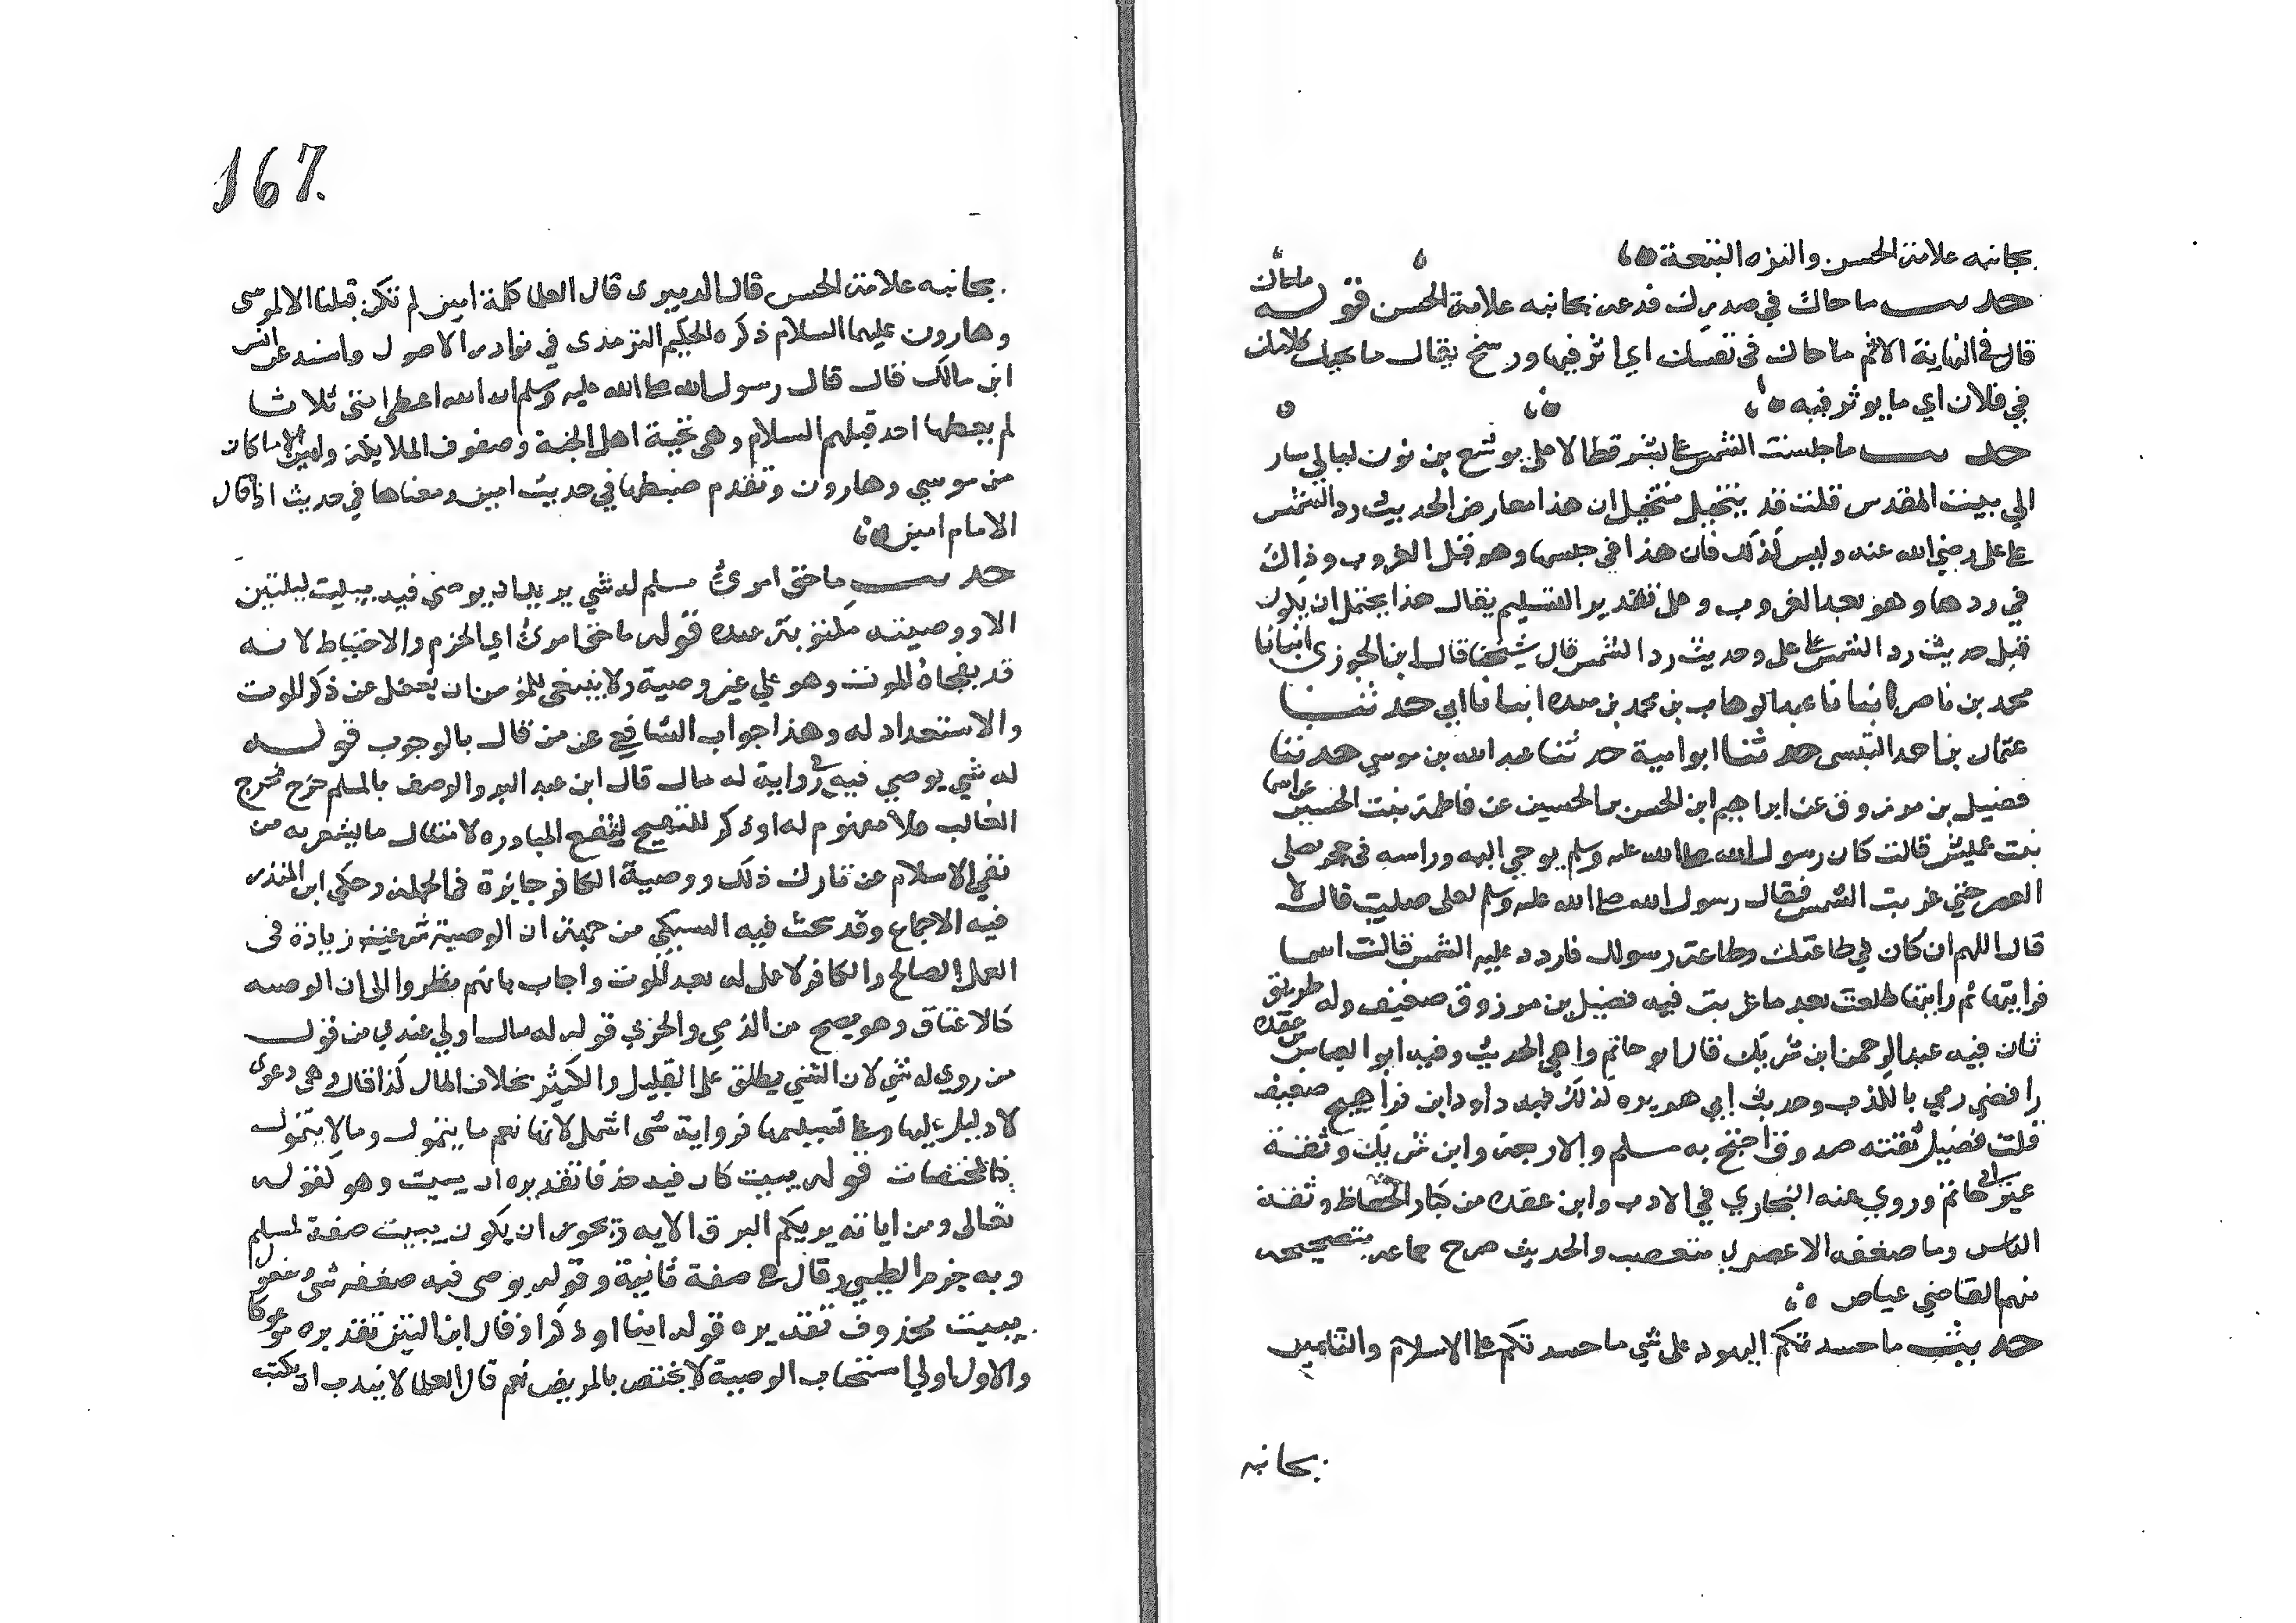 بجانبه علامة الحسن والنزه البقعة
حديث ما حاك في صدرك فدعه بجانبه علامة الحسن قوله ما حاك
قال في النهاية الاثم ما حاك في نفسك اي اثر فيها ورسخ يقال ما يحيك كلامك
في فلان اي ما يوثر فيه
حديث ما حبست الشمس على بشر قط الا على يوشع بن نون ليالي سار
الي بيت المقدس قلت قد يتخيل متخيل ان هذا معارض لحديث رد الشمس
على علي رضي الله عنه وليس كذلك فان هذا في حبسها وهو قبل الغروب وذاك
في ردها وهو بعد الغروب وعلى تقدير التسليم يقال هذا يحتمل ان يكون
قبل حديث رد الشمس على علي وحديث رد الشمس قال شيخنا قال ابن الجوزي انبانا
محمد بن ناصر انبانا عبد الوهاب بن محمد بن منده انبانا ابي حدثنا
عثمان بن احمد التنسي حدثنا ابو امية حدثنا عبد الله بن موسي حدثنا
فضيل بن مرزوق عن ابراهيم ابن الحسن بن الحسين عن فاطمة بنت الحسين عن اسما
بنت عميس قالت كان رسول الله صلى الله عليه وسلم يوحي اليه وراسه في حجر علي
العصر حتي غربت الشمس فقال رسول الله صلى الله عليه وسلم لعلى صليت قال لا
قال اللهم ان كان في طاعتك وطاعة رسولك فاردد عليه الشمس قالت اسما
فرايتها ثم رايتها طلعت بعد ما غربت فيه فضيل بن مرزوق ضعيف وله طريق
ثان فيه عبد الرحمن ابن شريك قال ابو حاتم واهي الحديث وفيه ابو العباس بن عقده
رافضي رمي بالكذب وحديث ابي هريره كذلك فيه داود ابن فراهيج ضعيف
قلت فضيل ثقته صدوق احتج به مسلم والاربعة وابن شريك وثقة
غير ابي حاتم وروي عنه البخاري في الادب وابن عقده من كبار الحفاظ وثقة
الناس وما ضعفه الا عصري متعصب والحديث صرح جماعه بتصحيحه
منهم القاضي عياض
حديث ما حسدتكم اليهود على شي ما حسدتكم على الاسلام والتامين
بجانبه
167
بجانبه علامة الحسن قال الدميري قال العلما كلمة امين لم تكن قبلنا الا لموسى
وهارون عليهما السلام ذكره الحكيم الترمذي في نوادر الاصول واسند عن انس
ابن مالك قال قال رسول الله صلى الله عليه وسلم ان الله اعطى امتي ثلاثا
لم يعطها احد قبلهم السلام وهي تحية اهل الجنة وصفوف الملايكة وامين الا ما كان
من موسي وهارون وتقدم ضبطها في حديث امين ومعناها في حديث اذا قال
الامام امين
حديث ما حق امرئ مسلم له شي يريد ان يوصي فيه يبيت ليلتين
الا ووصيته مكتوبة عنده قوله ما حق امرئ اي الحزم والاحتياط لانه
قد يفجاه الموت وهو علي غير وصية ولا ينبغي للمومن ان يغفل عن ذكر الموت
والاستعداد له وهذا جواب الشافعي عن من قال بالوجوب قوله
له شي يوصي فيه في رواية له مال قال ابن عبد البر والوصف بالمسلم خرج مخرج
الغالب فلا مفهوم له او ذكر للتهييج لتقع المبادره لامتثال ما يشعر به من
نفي الاسلام عن تارك ذلك ووصية الكافر جايزة في الجملة وحكي ابن المنذر
فيه الاجماع وقد بحث فيه السبكي من جهة ان الوصية شرعت زيادة في
العمل الصالح والكافر لا عمل له بعد الموت واجاب بانهم نظروا الى ان الوصيه
كالاعتاق وهو يصح من الذمي والحربي قوله له مال اولي عندي من قول
من روي له شي لان الشي يطلق على القليل والكثير بخلاف المال كذا قال وهي دعوى
لا دليل عليها وعلى تسليمها فرواية شى اشمل لانها تعم ما يتمول وما لا يتمول
كالمختصات قوله يبيت كان فيه حذفا تقديره ان يبيت وهو كقوله
تعالى ومن اياته يريكم البرق الايه ويجوز ان يكون يبيت صفة لمسلم
وبه جزم الطيبي وقال هي صفة ثانية وقوله يوصى فيه صفه شى ومفعول
يبيت محذوف تقديره قوله امنا او ذاكرا وقال ابن التين تقديره موعوكا
والاول اولي استحباب الوصية لا يختص بالمريض نعم قال العلما لا يندب ان يكتب